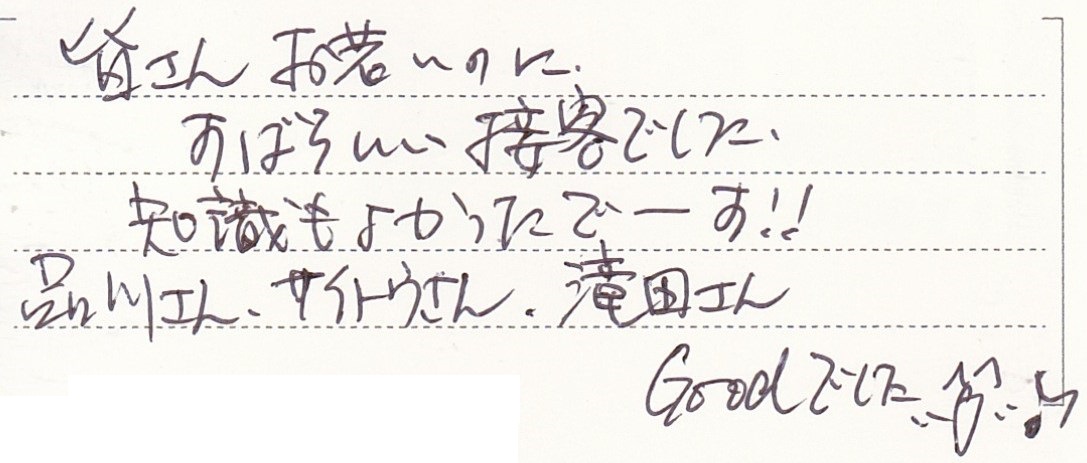 皆さんお若いのに、
すばらしい接客でした、
知識もよかったでーす!!
品川さん、サイトウさん、滝田さん
Goodでした♪